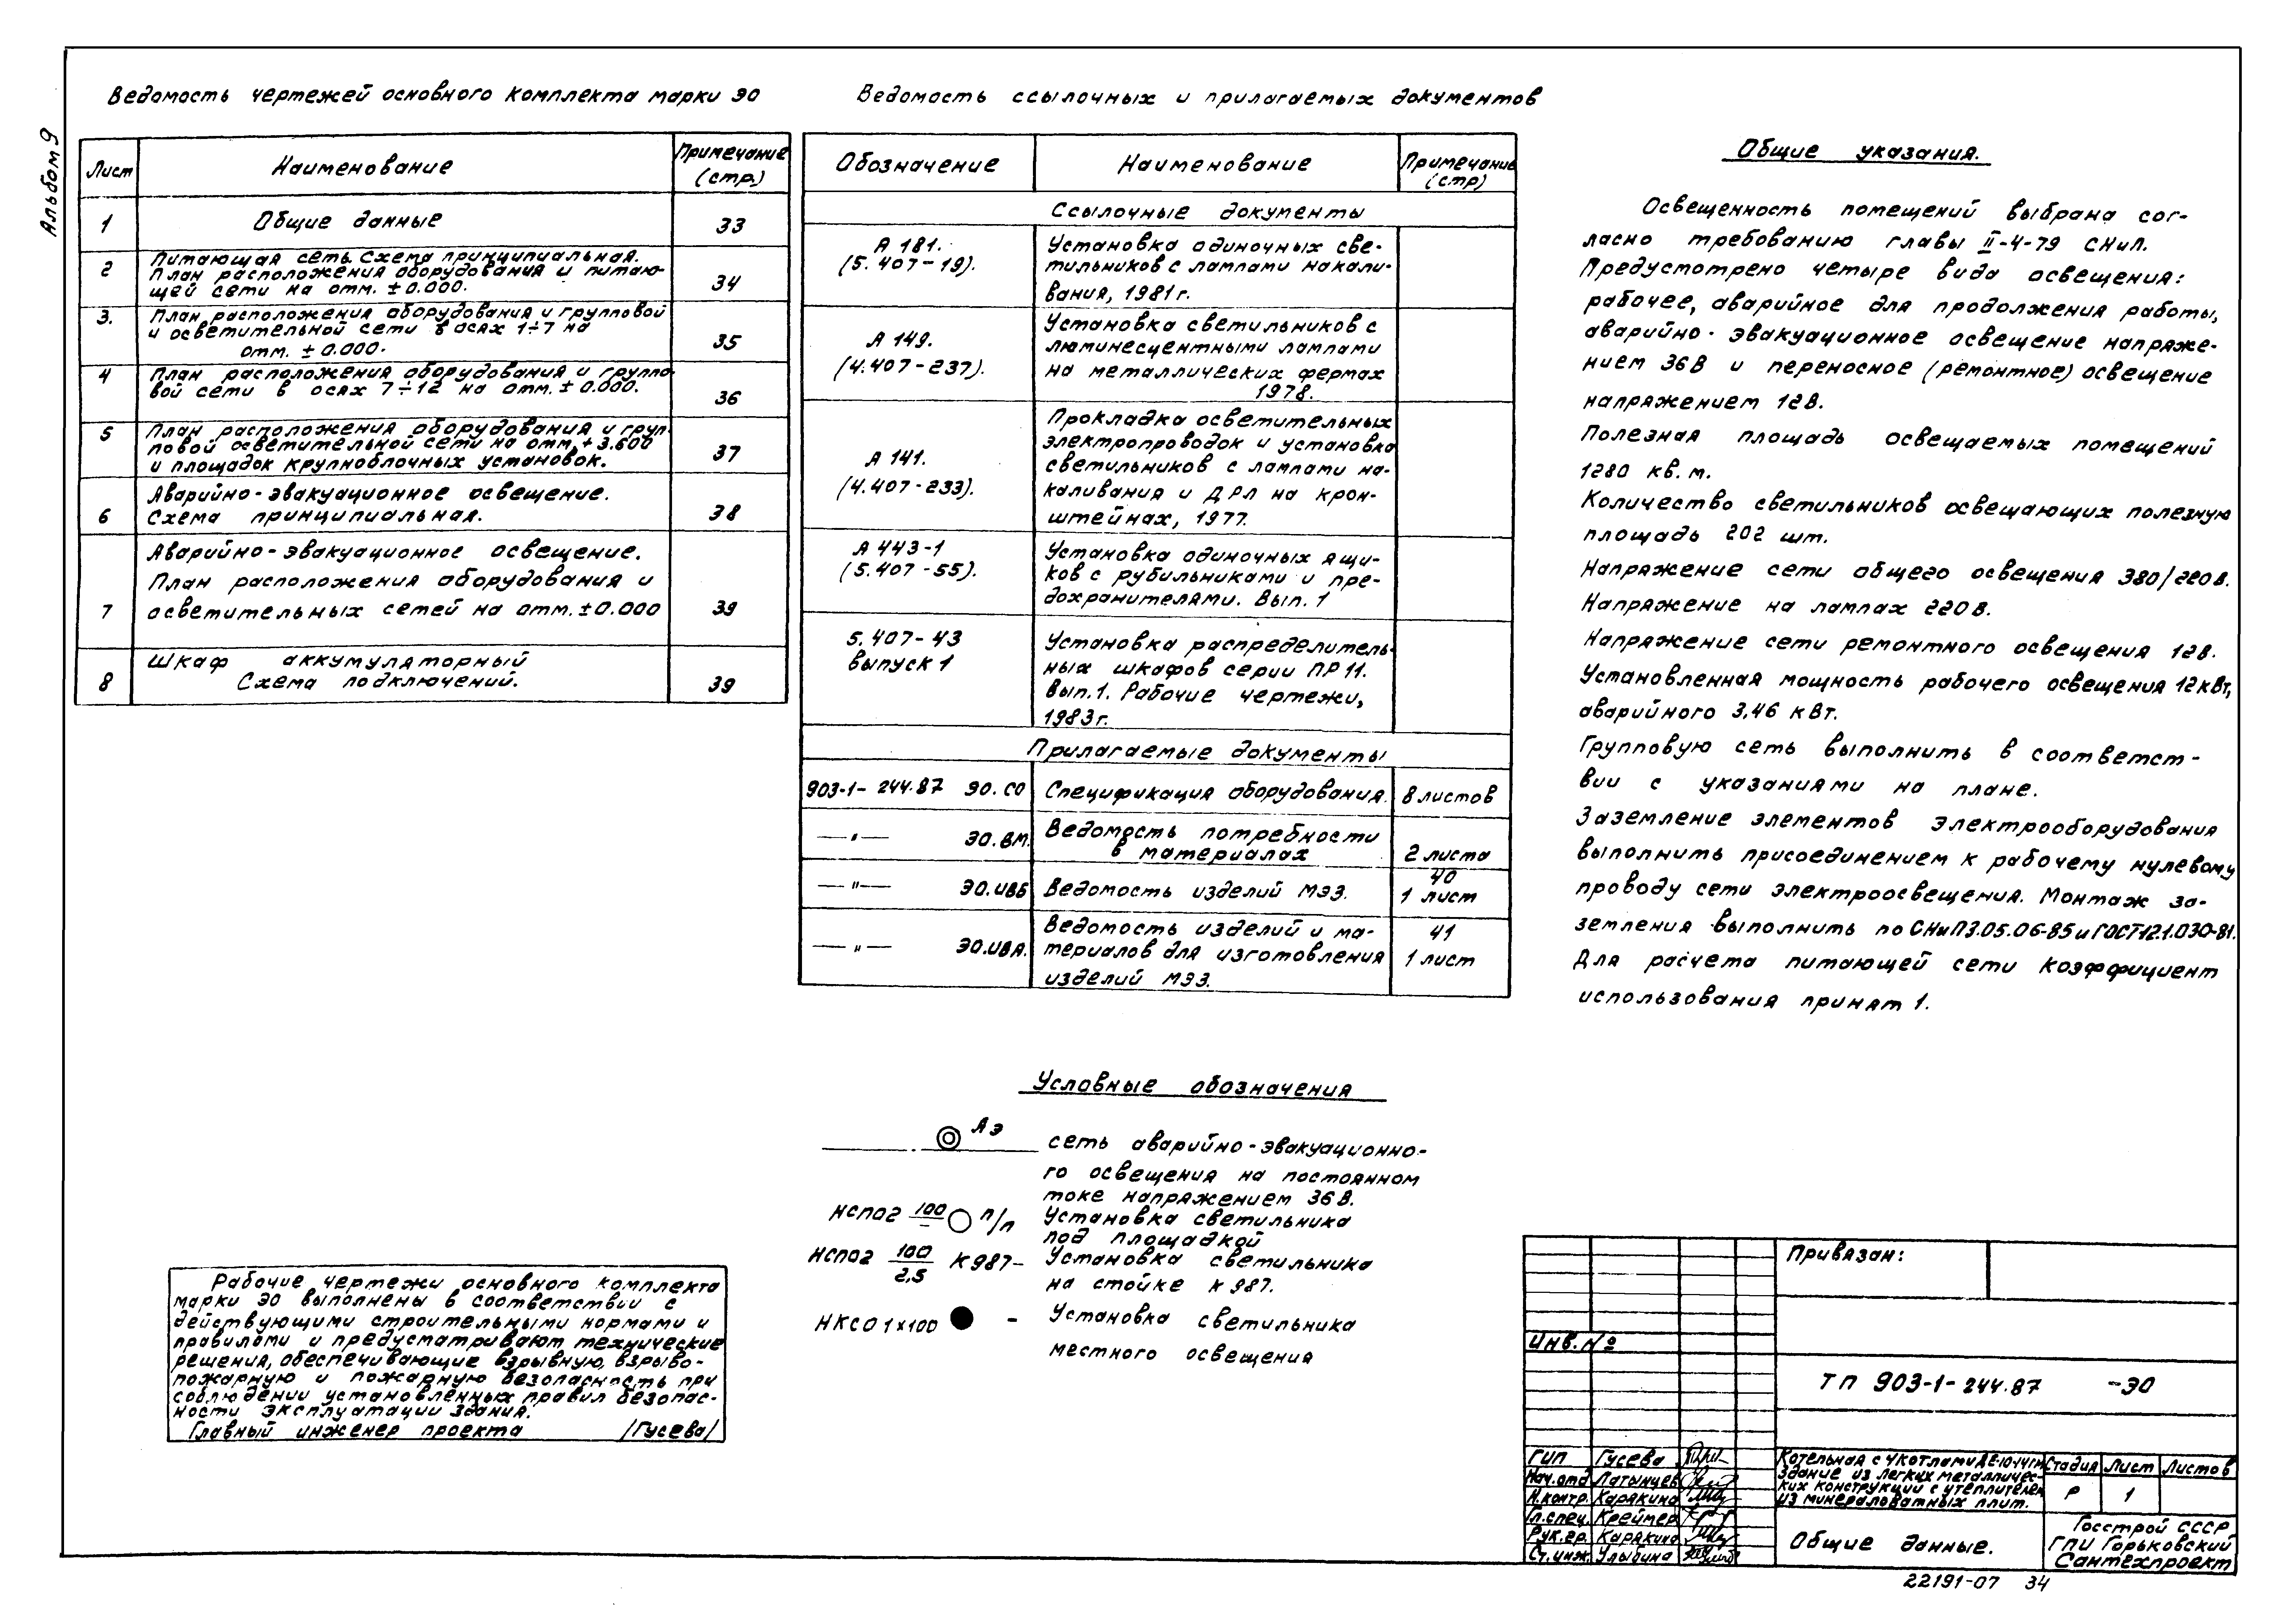 Альбом 9
Ведомость чертежей основного комплекта марки ЭО
Лист
Наименование
Примечание
(стр.)
1
Общие данные
33
2
Питающая сеть. Схема принципиальная.
План расположения оборудования и питаю-
щей сети на отм. ±0.000.
34
3.
План расположения оборудования и групповой
и осветительной сети в осях 1÷7 на
отм. ±0.000.
35
4
План расположения оборудования и группо-
вой сети в осях 7÷12 на отм. ±0.000.
36
5
План расположения оборудования и груп-
повой осветительной сети на отм. +3.600
и площадок крупноблочных установок.
37
6
Аварийно-эвакуационное освещение.
Схема принципиальная.
38
7
Аварийно-эвакуационное освещение.
План расположения оборудования и
осветительных сетей на отм. ±0.000
39
8
Шкаф аккумуляторный
Схема подключений.
39
Ведомость ссылочных и прилагаемых документов
Обозначение
Наименование
Примечание
(стр)
Ссылочные документы
А 181.
(5.407-19).
Установка одиночных све-
тильников с лампами накали-
вания, 1981г.
А 149.
(4.407-237).
Установка светильников с
люминесцентными лампами
на металлических фермах
1978.
А 141.
(4.407-233).
Прокладка осветительных
электропроводок и установка
светильников с лампами на-
каливания и ДРЛ на крон-
штейнах, 1977.
А 443-1
(5.407-55).
Установка одиночных ящи-
ков с рубильниками и пре-
дохранителями. Вып. 1
5.407-43
выпуск 1
Установка распределитель-
ных шкафов серии ПР11.
Вып.1. Рабочие чертежи,
1983г.
Прилагаемые документы
903-1-244.87 ЭО.СО
Спецификация оборудования.
8 листов
—"— ЭО.ВМ.
Ведомость потребности
в материалах
2 листа
—"— ЭО.ИВБ
Ведомость изделий МЭЗ.
40
1 лист
—"— ЭО.ИВА.
Ведомость изделий и ма-
териалов для изготовления
изделий МЭЗ.
41
1 лист
Общие указания.
Освещенность помещений выбрана сог-
ласно требованию главы II-4-79 СНиП.
Предусмотрено четыре вида освещения:
рабочее, аварийное для продолжения работы,
аварийно-эвакуационное освещение напряже-
нием 36В и переносное (ремонтное) освещение
напряжением 12В.
Полезная площадь освещаемых помещений
1280 кв.м.
Количество светильников освещающих полезную
площадь 202 шт.
Напряжение сети общего освещения 380/220В.
Напряжение на лампах 220В.
Напряжение сети ремонтного освещения 12В.
Установленная мощность рабочего освещения 12кВт,
аварийного 3,46 кВт.
Групповую сеть выполнить в соответст-
вии с указаниями на плане.
Заземление элементов электрооборудования
выполнить присоединением к рабочему нулевому
проводу сети электроосвещения. Монтаж за-
земления выполнить по СНиП3.05.06-85 и ГОСТ12.1.030-81.
Для расчета питающей сети коэффициент
использования принят 1.
Условные обозначения
АЭ
сеть аварийно-эвакуационно-
го освещения на постоянном
токе напряжением 36В.
НСП02 100/— п/п
Установка светильника
под площадкой
НСП02 100/2,5 К987-
Установка светильника
на стойке К987.
НКС01х100 -
Установка светильника
местного освещения
Рабочие чертежи основного комплекта
марки ЭО выполнены в соответствии с
действующими строительными нормами и
правилами и предусматривают технические
решения, обеспечивающие взрывную, взрыво-
пожарную и пожарную безопасность при
соблюдении установленных правил безопас-
ности эксплуатации здания.
Главный инженер проекта /Гусева/
Привязан:
Инв.№
ТП 903-1-244.87 -ЭО
ГИП Гусева
Нач.отд Латынцев
Н.контр. Карякина
Гл.спец. Креймер
Рук.гр. Карякина
Ст.инж. Улыбина
Котельная с 4 котлами ДЕ-10-14ГМ
Здание из легких металличес-
ких конструкций с утеплителем
из минераловатных плит.
Стадия Лист Листов
Р 1
Общие данные.
Госстрой СССР
ГПИ Горьковский
Сантехпроект
22191-07 34